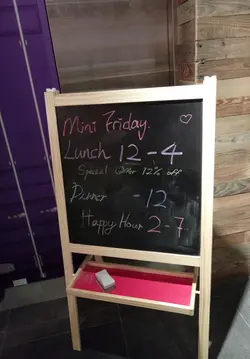 Mini Friday.
Lunch 12 - 4
Special Offer 12% off
Dinner - 12
Happy Hour 2-7